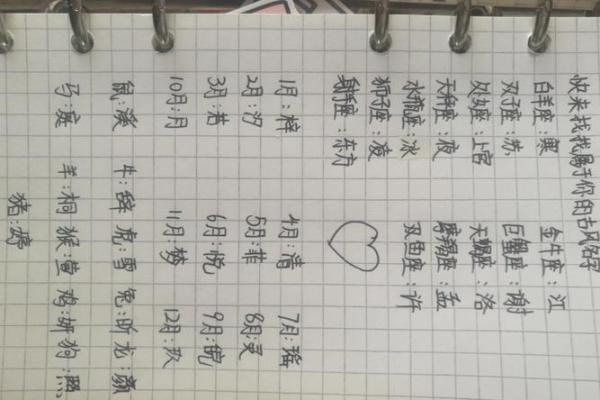 快来找找属于你的古风名字
白羊座:奥 金牛座:江
双子座:苏 巨蟹座:谢
处女座:上官 天蝎座:洛
天秤座:夜 摩羯座:孟
水瓶座:冰 双鱼座:许
狮子座:凌
射手座:东方
1月:梓 4月:清 7月:瑶
2月:汐 5月:菲 8月:灵
3月:若 6月:悦 9月:皖
10月:月 11月:梦 12月:玖
鼠:溪 牛:辞 虎:雪 兔:昕 龙:颜
马:寇 羊:桐 猴:萱 鸡:妍 狗:熙
猪:婷